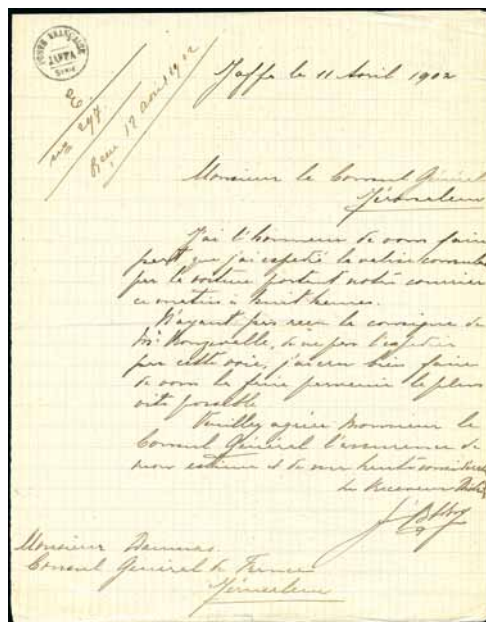 POSTE FRANÇAISE
JAFFA
Syrie
E
no 297
Reçu 12 avril 1902
Jaffa le 11 Avril 1902
Monsieur le Consul Général
Jérusalem
J'ai l'honneur de vous faire
part que j'ai expédié la valise consulaire
par la voiture portant notre courrier
ce matin à huit heures.
N'ayant pas reçu la consigne de
Mr de ne pas l'expédier
par cette voie, j'ai cru bien faire
de vous la faire parvenir le plus
vite possible
Veuillez agréer Monsieur le
Consul Général l'assurance de
mon estime et de ma haute considération
Le Receveur
Monsieur
Consul Général de France
Jérusalem